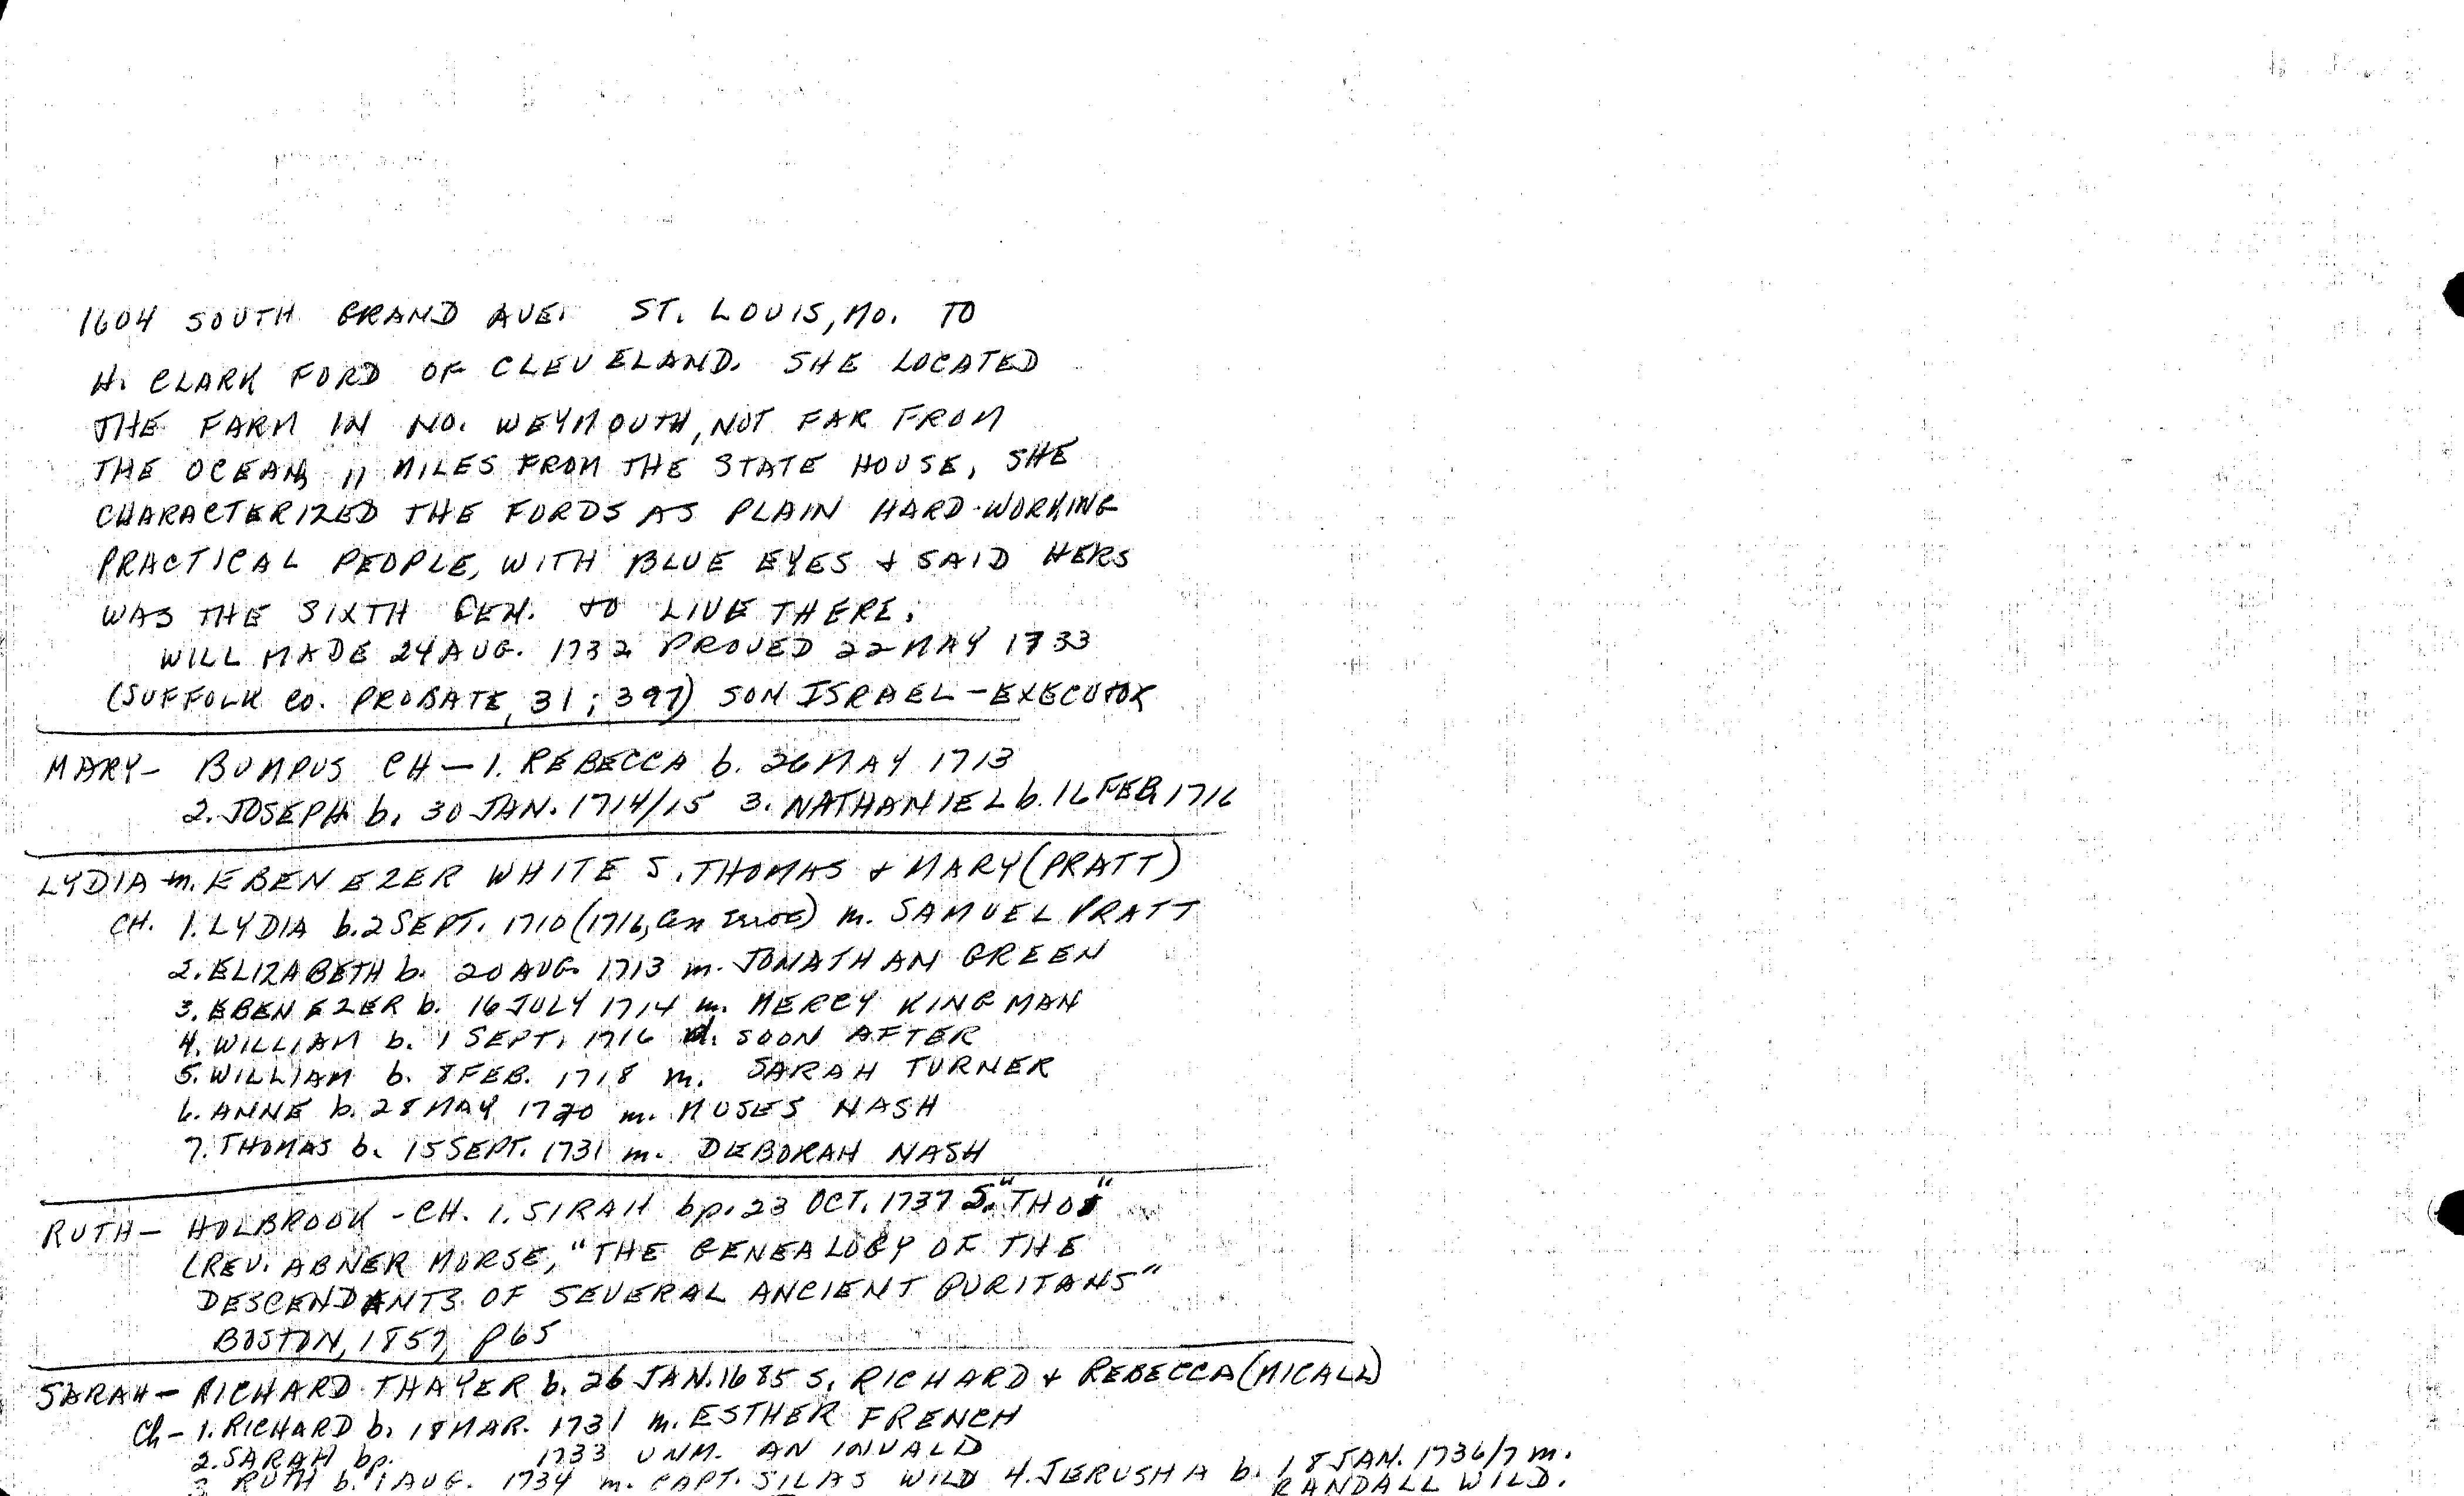 1604 SOUTH GRAND AVE. ST. LOUIS, MO. TO
H. CLARK FORD OF CLEVELAND. SHE LOCATED
THE FARM IN NO. WEYMOUTH, NOT FAR FROM
THE OCEAN, 11 MILES FROM THE STATE HOUSE, SHE
CHARACTERIZED THE FORDS AS PLAIN HARD-WORKING
PRACTICAL PEOPLE, WITH BLUE EYES & SAID HERS
WAS THE SIXTH GEN. TO LIVE THERE.
WILL MADE 24 AUG. 1732 PROVED 22 MAY 1733
(SUFFOLK CO. PROBATE, 31; 397) SON ISRAEL - EXECUTOR
MARY - BUMPUS CH - 1. REBECCA b. 26 MAY 1713
2. JOSEPH b. 30 JAN. 1714/15 3. NATHANIEL b. 16 FEB. 1716
LYDIA m. EBENEZER WHITE S. THOMAS & MARY (PRATT)
CH. 1. LYDIA b. 2 SEPT. 1710 (1716, an ) m. SAMUEL PRATT
2. ELIZABETH b. 20 AUG. 1713 m. JONATHAN GREEN
3. EBENEZER b. 16 JULY 1714 m. MERCY KINGMAN
4. WILLIAM b. 1 SEPT. 1716 d. SOON AFTER
5. WILLIAM b. 8 FEB. 1718 m. SARAH TURNER
6. ANNE b. 28 MAY 1720 m. MOSES NASH
7. THOMAS b. 15 SEPT. 1731 m. DEBORAH NASH
RUTH - HOLBROOK - CH. 1. SIRAH bp. 23 OCT. 1737 S. "THOS"
(REV. ABNER MORSE, "THE GENEALOGY OF THE
DESCENDANTS OF SEVERAL ANCIENT PURITANS"
BOSTON, 1857, P65
SARAH - RICHARD THAYER b. 26 JAN. 1685 S. RICHARD & REBECCA (MICALL)
Ch - 1. RICHARD b. 18 MAR. 1731 m. ESTHER FRENCH
2. SARAH bp. 1733 UNM. AN INVALD
3 RUTH b. 1 AUG. 1734 m. CAPT. SILAS WILD 4. JERUSHA b. 18 JAN. 1736/7 m.
RANDALL WILD.